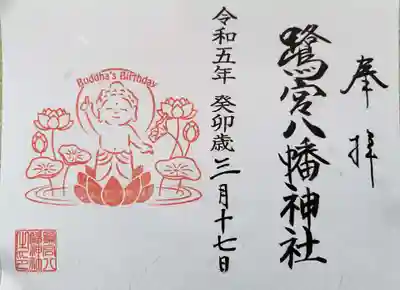 奉拝
鷺宮八幡神社
令和五年 癸卯歳 三月十七日
Buddha's Birthday